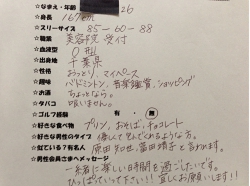 ☆なまえ・年齢 26
☆身長 161cm
☆スリーサイズ 85-60-88
☆職業 美容院 受付
☆血液型 O型
☆出身地 千葉県
☆性格 おっとり、マイペース
☆趣味 バドミントン、音楽鑑賞、ショッピング
☆お酒 ちょっとなら。
☆タバコ 吸いません。
☆ゴルフ経験 有・無
☆好きな食べ物 プリン、おそば、チョコレート
☆好きな男性のタイプ 優しくて包んでくれるような方。
☆似ている?有名人 原田知世、冨田靖子と言われます。
☆男性会員さまへメッセージ
一緒に楽しい時間を過ごしたいです。
ひっぱっていって下さい!!宜しくお願いします!!